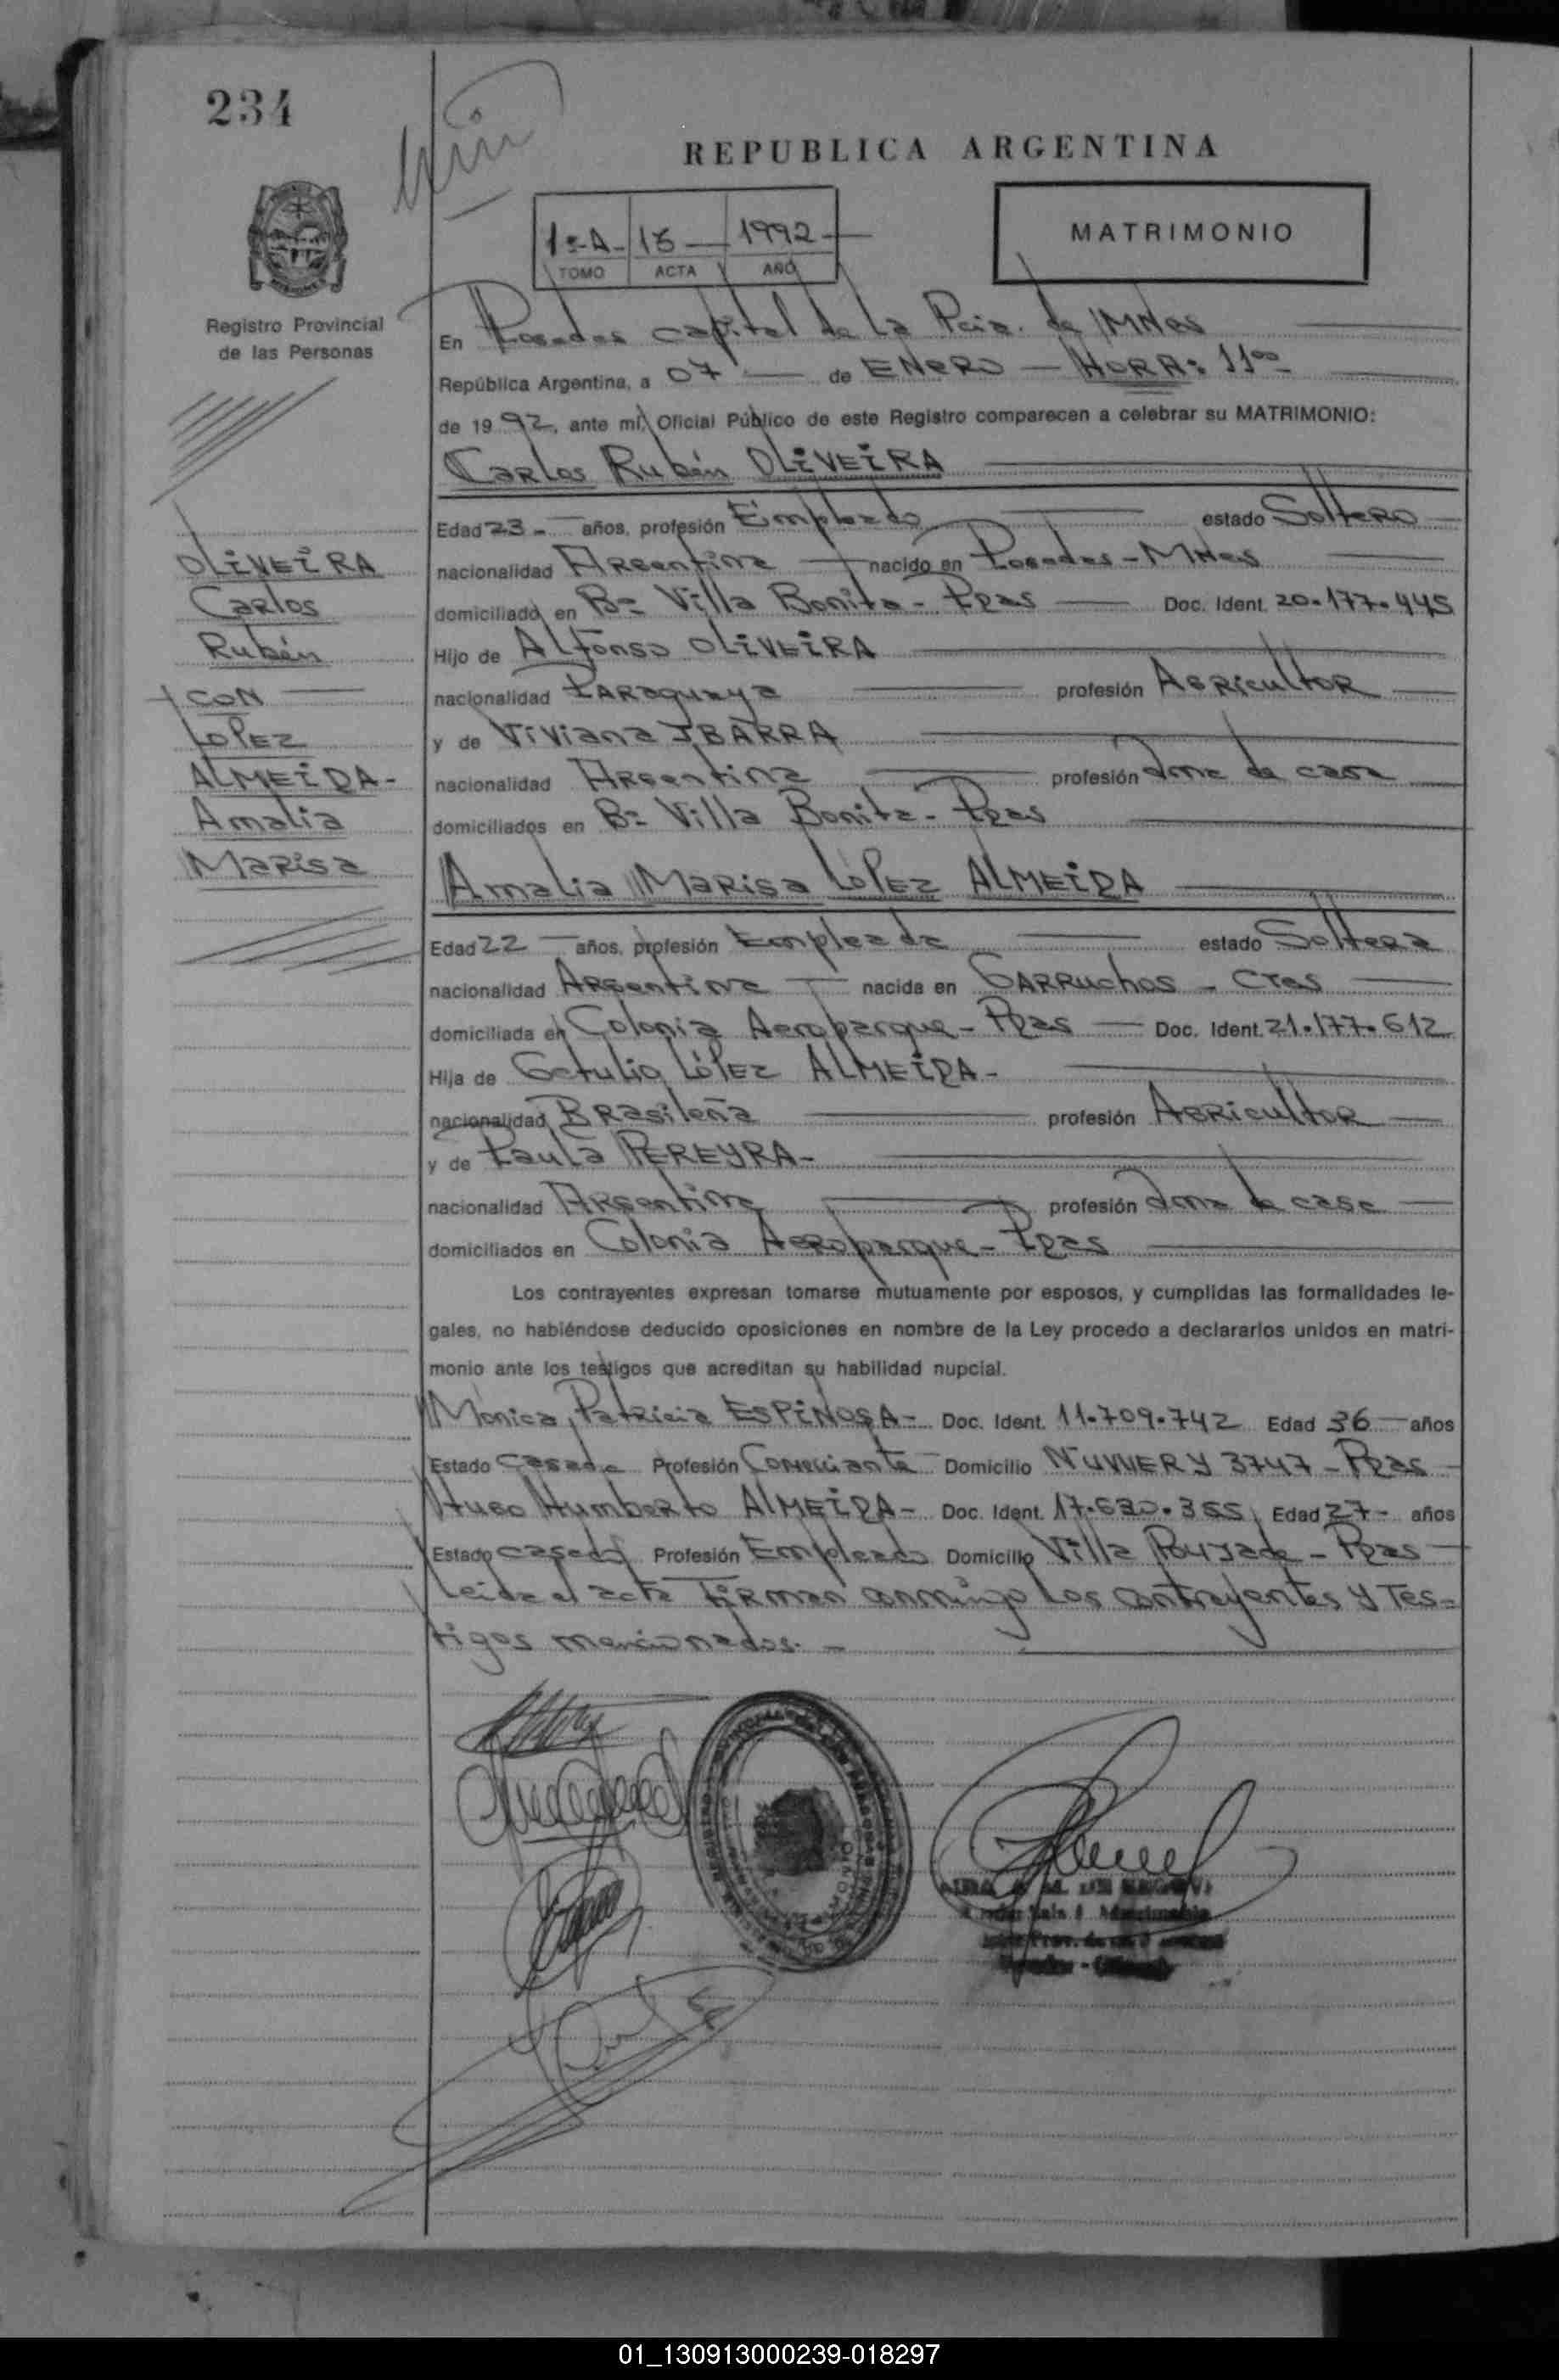 234
REPUBLICA ARGENTINA
1º-A- 18 1992
TOMO ACTA AÑO
MATRIMONIO
Registro Provincial
de las Personas
En Posadas capital de la Pcia. de MNes
República Argentina, a 07 de ENERO - HORA: 11⁰⁰
de 1992, ante mí, Oficial Público de este Registro comparecen a celebrar su MATRIMONIO:
Carlos Rubén OLIVEIRA
Edad 23- años, profesión Empleado estado Soltero
nacionalidad Argentina nacido en Posadas - MNes
domiciliado en Bº Villa Bonita - Pdas Doc. Ident. 20.177.445
Hijo de Alfonso OLIVEIRA
nacionalidad Paraguaya profesión Agricultor
y de Viviana IBARRA
nacionalidad Argentina profesión ama de casa
domiciliados en Bº Villa Bonita - Pdas
OLIVEIRA
Carlos
Rubén
CON
LOPEZ
ALMEIDA-
Amalia
Marisa
Amalia Marisa LÓPEZ ALMEIDA
Edad 22 años, profesión Empleada estado Soltera
nacionalidad Argentina nacida en GARRUchos - CTes
domiciliada en Colonia Aeroparque - Pdas Doc. Ident. 21.177.612
Hija de Getulio LÓPEZ ALMEIDA-
nacionalidad Brasileña profesión Agricultor
y de Paula PEREYRA-
nacionalidad Argentina profesión ama de casa
domiciliados en Colonia Aeroparque - Pdas
Los contrayentes expresan tomarse mutuamente por esposos, y cumplidas las formalidades le-
gales, no habiéndose deducido oposiciones en nombre de la Ley procedo a declararlos unidos en matri-
monio ante los testigos que acreditan su habilidad nupcial.
Mónica Patricia ESPINOSA- Doc. Ident. 11.709.742 Edad 36 años
Estado Casada Profesión Comerciante Domicilio 3747 - Pdas
Hugo Humberto ALMEIDA- Doc. Ident. 17.630.355 Edad 27- años
Estado casado Profesión Empleado Domicilio Villa Poujade - Pdas
Leida el acta FIRMAN conmigo los contrayentes y Tes-
tigos mencionados.-
01_130913000239-018297